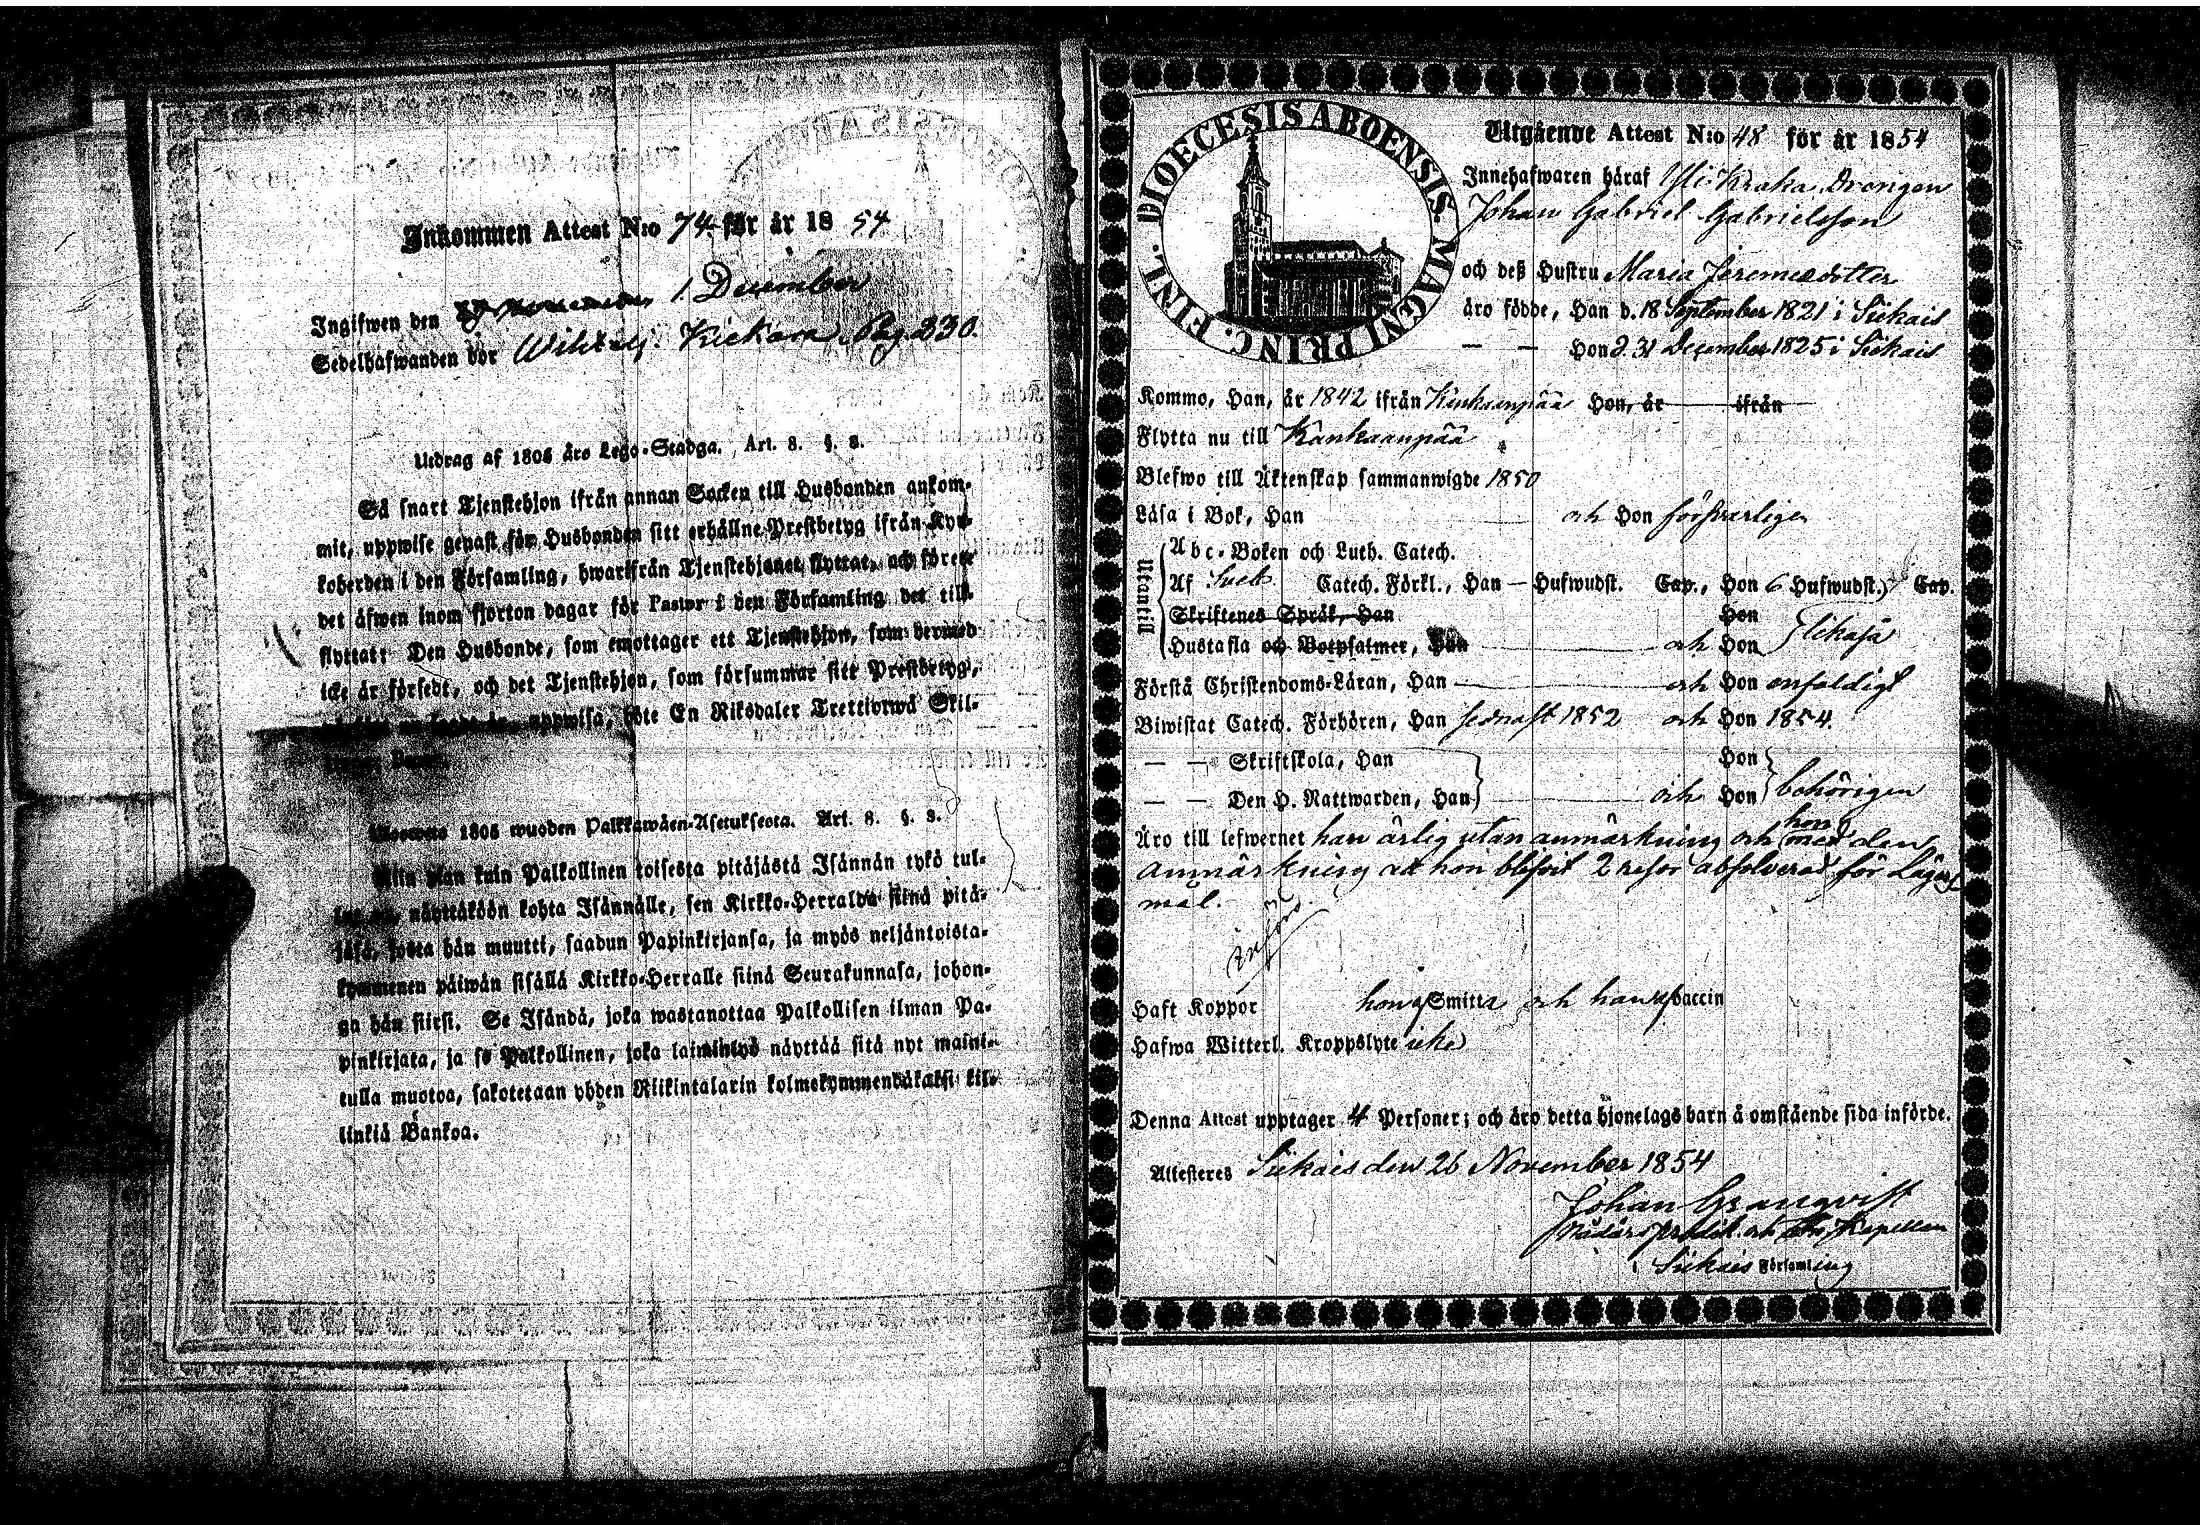 Inkommen Attest N:o 74 för år 1854
Ingifwen den 1 December
Sedelhafwanden bor Kiekara Pag. 330.
Utdrag af 1805 års Lego-Stadga. Art. 8. §. 8.
Så snart Tjenstehjon ifrån annan Socken till Husbonden ankom-
mit, uppwise genast för Husbonden sitt erhållne Prestbetyg ifrån Kyr-
koherden i den Församling, hwarifrån Tjenstehjonet flyttat, och förete
det äfwen inom fjorton dagar för Pastor i den Församling det till-
flyttat: Den Husbonde, som emottager ett Tjenstehjon, som dermed
icke är försedt, och det Tjenstehjon, som försummar sitt Prestbetyg,
uppwisa, böte En Riksdaler Trettiotwå Skil-
1805 wuoden Palkkawäen-Asetuksesta. Art. 8. §. 8.
Niin pian kuin Palkollinen toisesta pitäjästä Isännän tykö tul-
näyttäköön kohta Isännälle, sen Kirkko-Herralda siinä pitä-
jäsä, josta hän muutti, saadun Papinkirjansa, ja myös neljäntoista-
kymmenen päiwän sisällä Kirkko-Herralle siinä Seurakunnasa, johon-
ga hän siirsi. Se Isändä, joka wastanottaa Palkollisen ilman Pa-
pinkirjata, ja se Palkollinen, joka laiminlyö näyttää sitä nyt maini-
tulla muotoa, sakotetaan yhden Riikintalarin kolmekymmendäkaksi kil-
linkiä Bankoa.
DIOECESIS ABOENSIS. MAGNI PRINC. FINL.
Utgående Attest N:o 48 för år 1854
Innehafwaren häraf Yli Kraka Drengen
Johan Gabriel Gabrielsson
och deß Hustru Maria Jeremiedotter
äro födde, Han d. 18 September 1821 i Siikais
— — Hon d. 31 December 1825 i Siikais
Kommo, Han, år 1842 ifrån Kankaanpää Hon, år ifrån
Flytta nu till Kankaanpää
Blefwo till Äktenskap sammanwigde 1850
Läsa i Bok, Han och Hon förswarligen
Utantill
Abc-Boken och Luth. Catech.
Af Sveb. Catech. Förkl., Han — Hufwudst. Cap., Hon 6 Hufwudst. Cap.
Skriftenes Språk, Han Hon
Hustafla och Botpsalmer, Han och Hon likaså
Förstå Christendoms-Läran, Han och Hon enfaldigt
Biwistat Catech. Förhören, Han sednast 1852 och Hon 1854.
— — Skriftskola, Han Hon
— — Den H. Nattwarden, Han och Hon behörigen
Äro till lefwernet han ärlig utan anmärkning och hon med den
anmärkning att hon blifvit 2 resor absolverad för Lägers-
mål.
Haft Koppor hon Smitt och han Vaccin
Hafwa Witterl. Kroppslyte icke
Denna Attest upptager 4 Personer; och äro detta hjonelags barn å omstående sida införde.
Attesteres Siikais den 26 November 1854
Johan Granqvist
Kapellan
i Siikais Församling